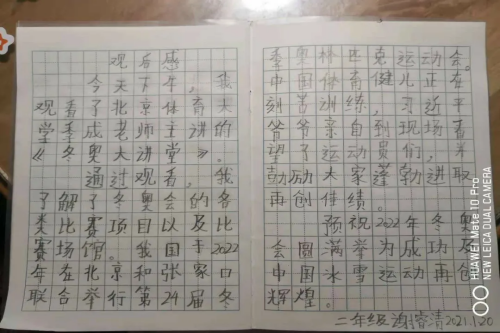 观后感
今天下午，我
观看了北京体育大
学李成老师主讲的
《冬奥大讲堂》。
通过观看，我
了解了冬奥会的各
类比赛项目以及比
赛场馆。我国于2022
年在北京和张家口
联合举行第24届冬
季奥林匹克运动会。
中国体育健儿正在
刻苦训练，习近平
爷爷亲自到现场看
望了运动员们，并
鼓励大家蓬勃进取
再创佳绩。
预祝2022年冬奥
会圆满举为成功及
中国冰雪运动再创
辉煌。
二年级 2021.1.20
HUAWEI Mate 10 Pro
NEW LEICA DUAL CAMERA